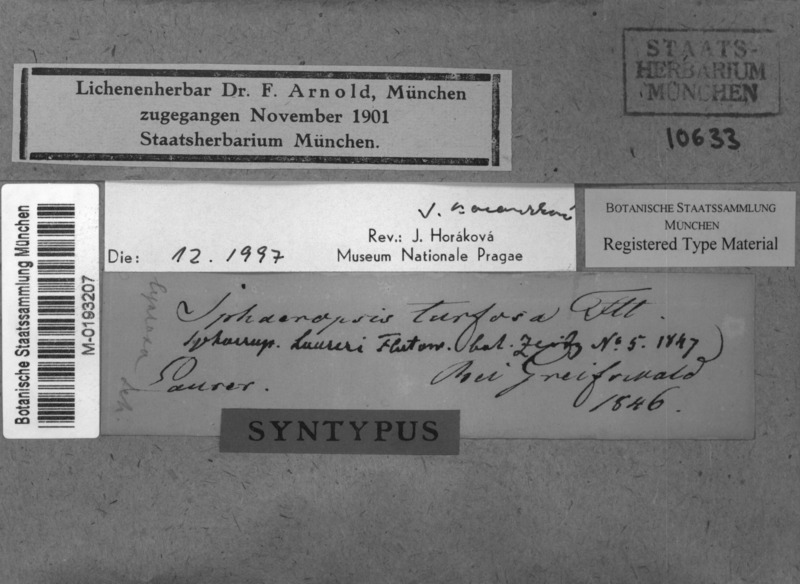 STAATS-
HERBARIUM
MÜNCHEN
10633
Lichenenherbar Dr. F. Arnold, München
zugegangen November 1901
Staatsherbarium München.
Botanische Staatssammlung München
M-0193207
Rev.: J. Horáková
Die: 12. 1997 Museum Nationale Pragae
BOTANISCHE STAATSSAMMLUNG
MÜNCHEN
Registered Type Material
Sphaeropsis turfosa Flt.
Laureri Flotow. bot. Zeitg No 5. 1847)
Laurer. Bei Greifswald
1846.
SYNTYPUS